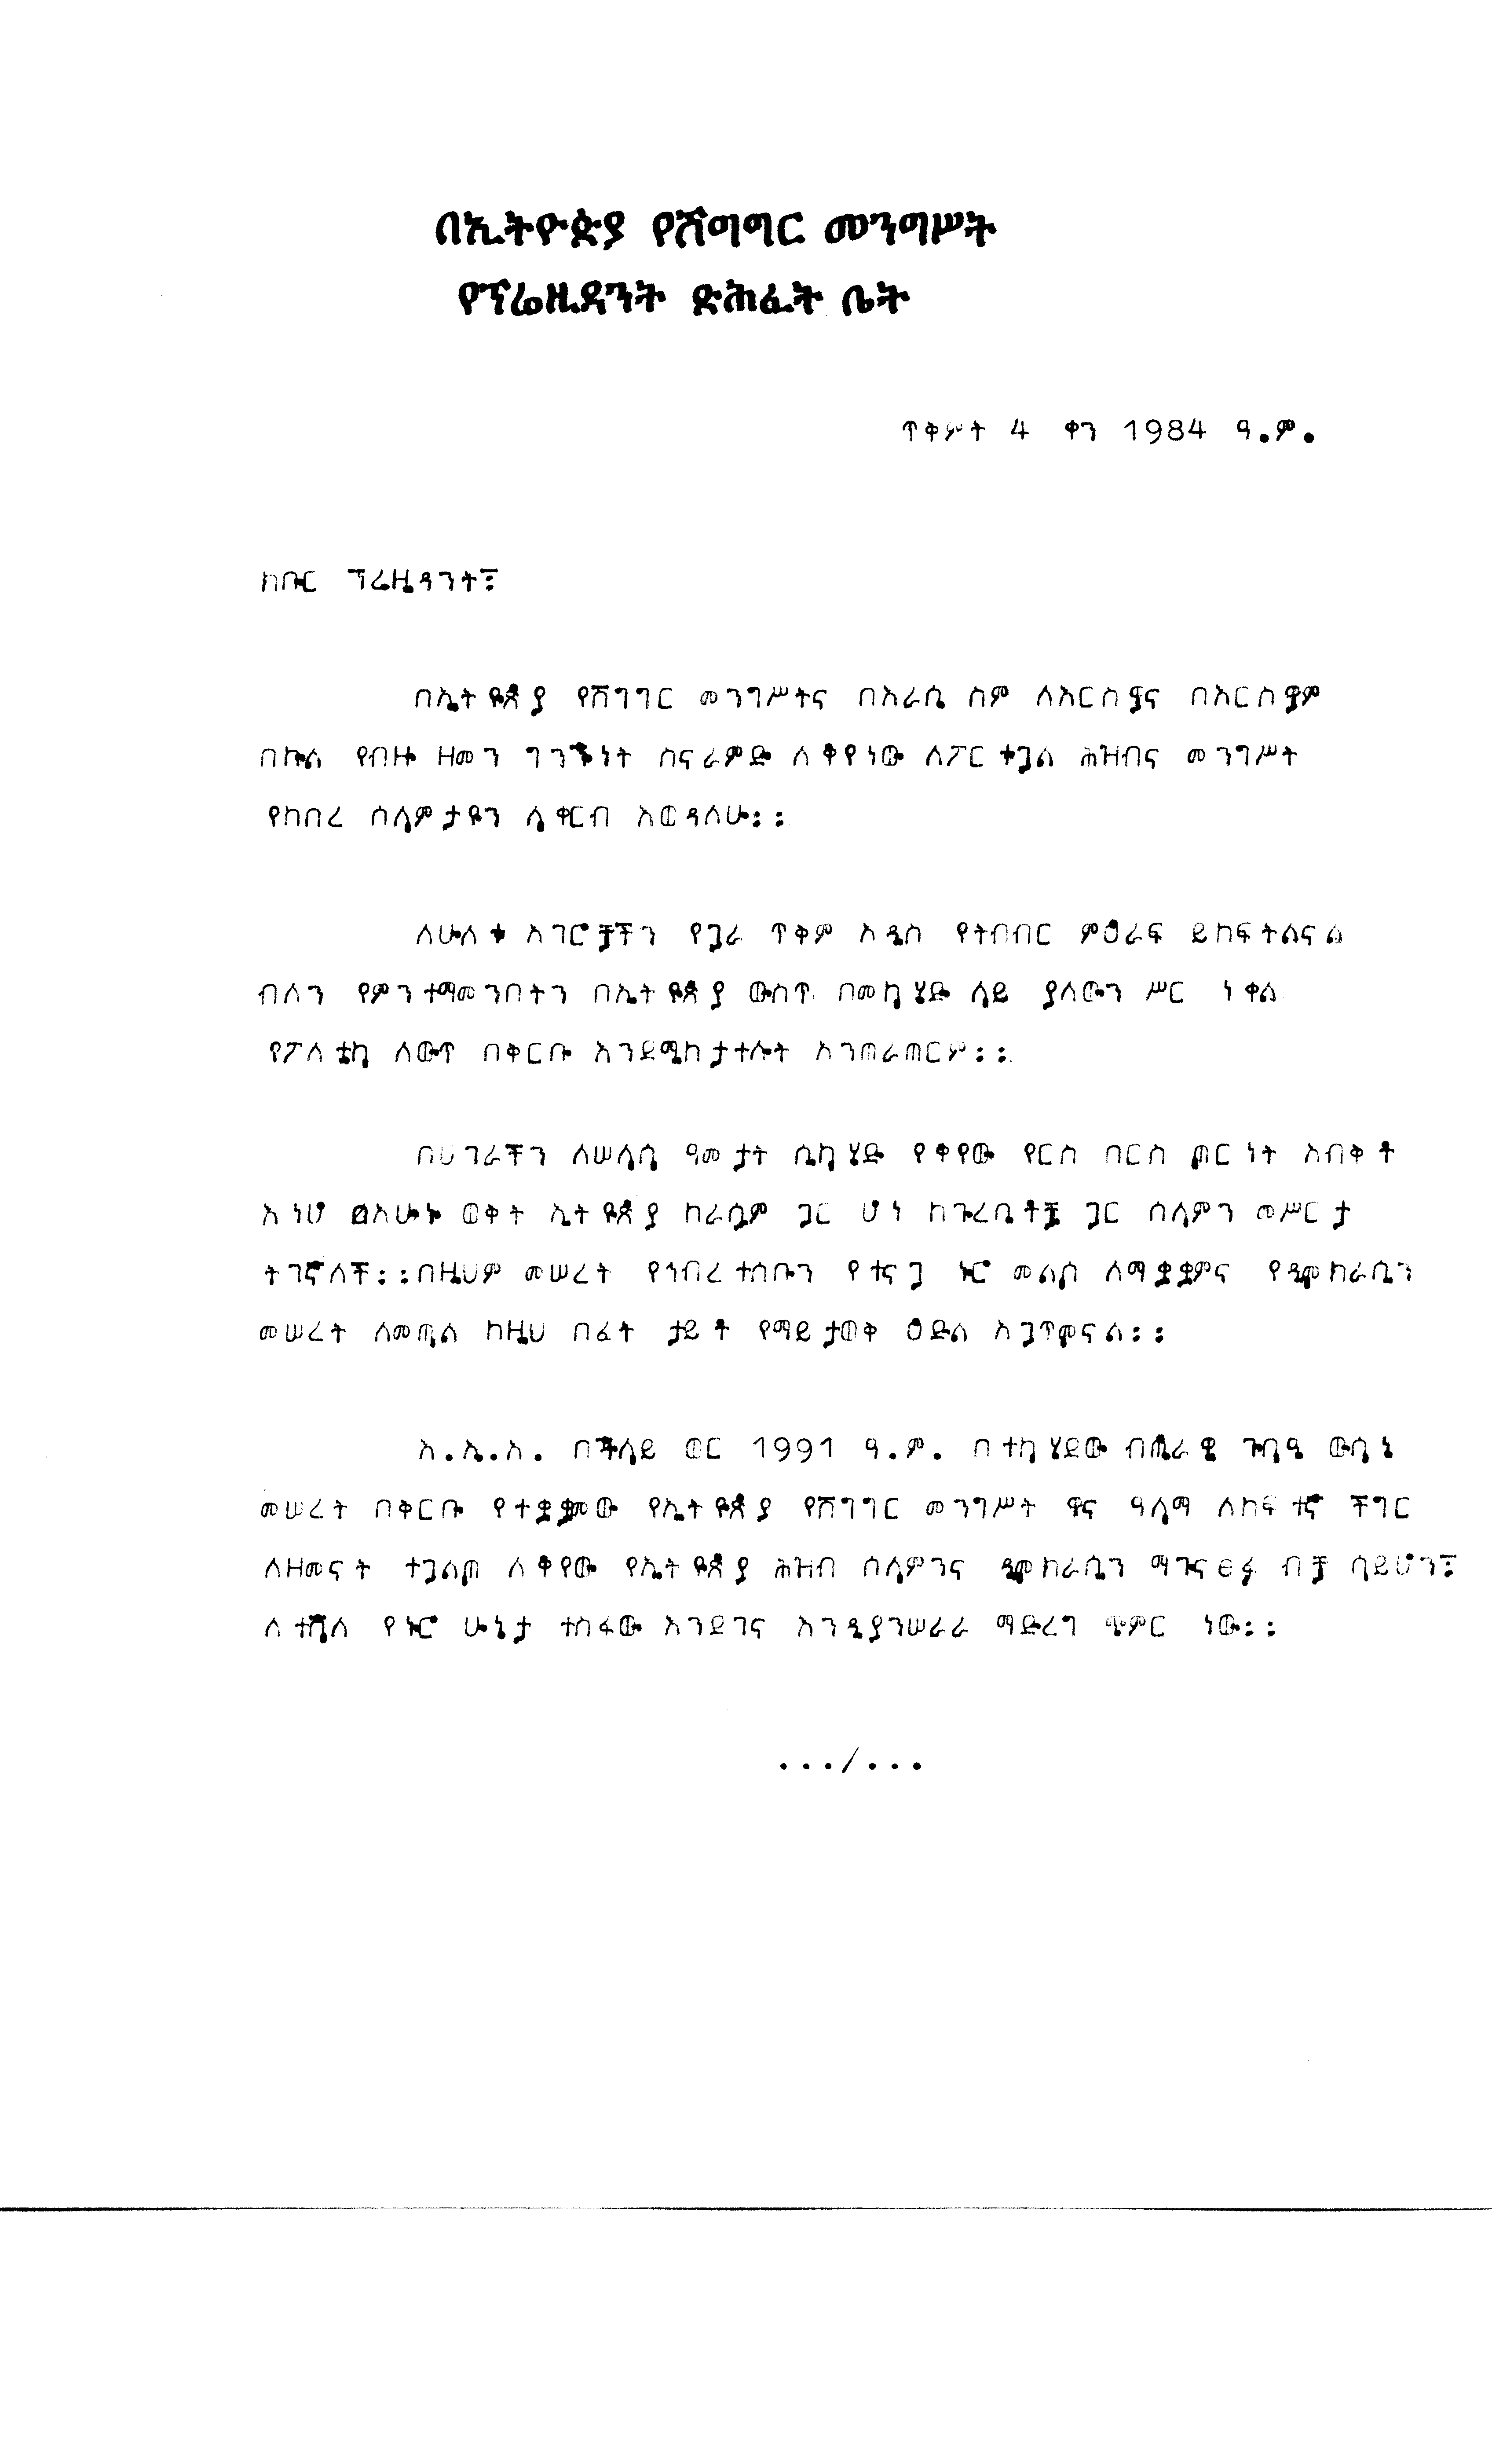 በኢትዮጵያ የሽግግር መንግሥት
የፕሬዚዳንት ጽሕፈት ቤት
ጥቅምት 4 ቀን 1984 ዓ.ም.
ክቡር ፕሬዚዳንት፤
በኢትዮጵያ የሽግግር መንግሥትና በእራሴ ስም ለእርስዎና በእርስዎም
በኩል የብዙ ዘመን ግንኙነት ስናራምድ ለቆየነው ለፖርቱጋል ሕዝብና መንግሥት
የከበረ ሰላምታዬን ሳቀርብ እወዳለሁ፡፡
ለሁለቱ አገሮቻችን የጋራ ጥቅም አዲስ የትብብር ምዕራፍ ይከፍትልናል
ብለን የምንተማመንበትን በኢትዮጵያ ውስጥ በመካሄድ ላይ ያለውን ሥር ነቀል
የፖለቲካ ለውጥ በቅርቡ እንደሚከታተሉት አንጠራጠርም፡፡
በሀገራችን ለሠላሳ ዓመታት ሲካሄድ የቆየው የርስ በርስ ጦርነት አብቅቶ
እነሆ በአሁኑ ወቅት ኢትዮጵያ ከራሷም ጋር ሆነ ከጉረቤቶቿ ጋር ሰላምን መሥርታ
ትገኛለች፡፡በዚህም መሠረት የኅብረተሰቡን የተናጋ ኑሮ መልሶ ለማቋቋምና የዲሞክራሲን
መሠረት ለመጣል ከዚህ በፊት ታይቶ የማይታወቅ ዕድል አጋጥሞናል፡፡
እ.ኢ.አ. በጁላይ ወር 1991 ዓ.ም. በተካሄደው ብሔራዊ ጉባዔ ውሳኔ
መሠረት በቅርቡ የተቋቋመው የኢትዮጵያ የሽግግር መንግሥት ዋና ዓላማ ለከፍተኛ ችግር
ለዘመናት ተጋልጦ ለቆየው የኢትዮጵያ ሕዝብ ሰላምንና ዲሞክራሲን ማጐናፀፉ ብቻ ሳይሆን፤
ለተሻለ የኑሮ ሁኔታ ተስፋው እንደገና እንዲያንሠራራ ማድረግ ጭምር ነው፡፡
.../...